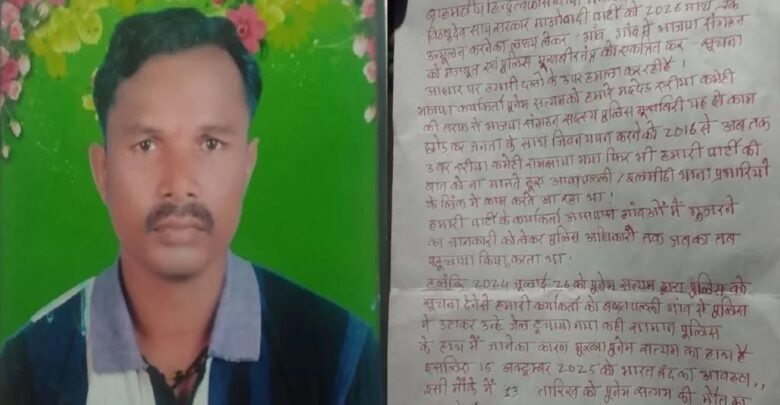 ब्राह्मणीय हिन्दुत्व
विष्णुदेव साय सरकार माओवादी पार्टी को 2026 मार्च तक
उन्मूलन करने का लक्ष्य लेकर। गांव, गांव में भाजपा संगठन
को मजबूत एवं पुलिस मुखबीर तंत्र को एकत्रित कर सूचना
आधार पर हमारी दलों के उपर हमला कर रही है।
भाजपा कार्यकर्ता पुनेम सत्यम को हमारे मददेड़ एरीया कमेटी
की तरफ से भाजपा संगठन सदस्य पुलिस मुखबिरी यह दो काम
छोड़ कर जनता के साथ जिवन यापन करने को 2016 से अब तक
3 बार एरीया कमेटी समझाया गया फिर भी हमारी पार्टी की
बात को ना मानते हुए आवापल्ली / इलमीडी थाना प्रभारियों
के लिंक में काम करते आ रहा था!
हमारी पार्टी के कार्यकर्ता आसपास गांवओं में गुजारने
का जानकारी को लेकर पुलिस अधिकारी तक जब का तब
पहूचाया किया, करता था।
हालांकि 2024 जूलाई 26 को पुनेम सत्यम द्वारा पुलिस को
सूचना देनेसे हमारी कार्यकर्ता को गांव से पुलिस
ने उठाकर उन्हे जेल गया कही सामान पुलिस
के हाथ में जानेका कारण मुख्य पुनेम सत्यम का हाथ है
इसलिए 15 अक्टूबर 2025 को भारत बंद का आवहान,,
इसी मौके में 13 तारिख को पुनेम सत्यम की मौत का